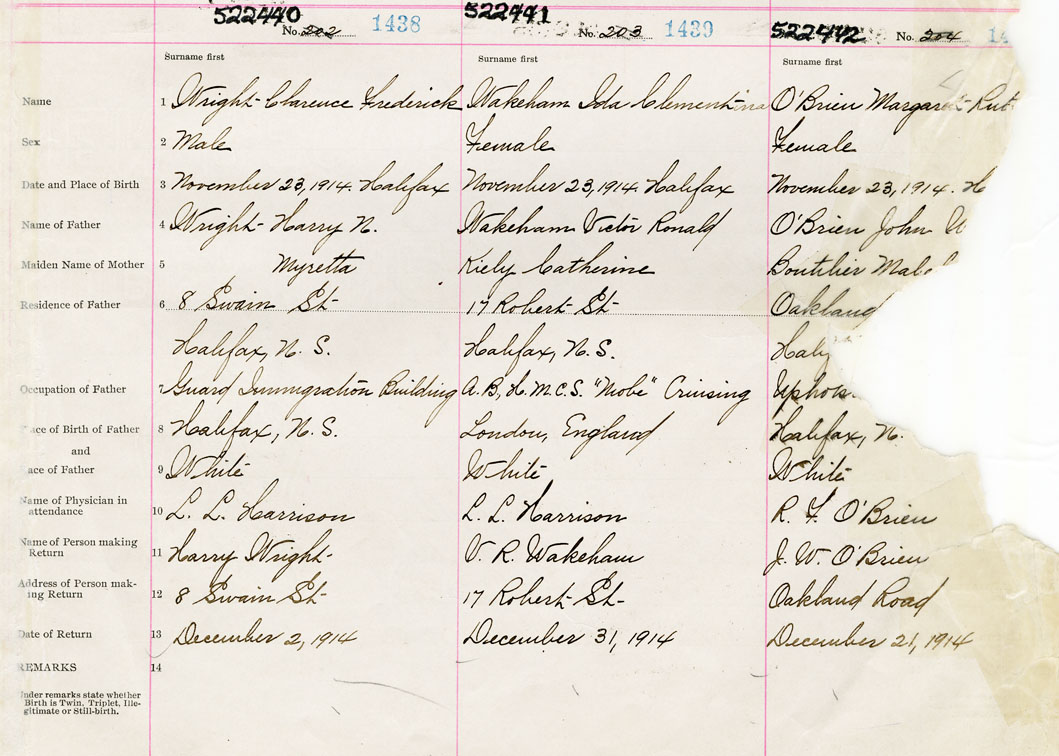 522440 522441 522442
No. 202 1438 No. 203 1439 No. 204 14
Surname first Surname first Surname first
Name 1 Wright Clarence Frederick Wakeham Ida Clementina O'Brien Margaret Rut
Sex 2 Male Female Female
Date and Place of Birth 3 November 23, 1914. Halifax November 23, 1914. Halifax November 23, 1914. H
Name of Father 4 Wright Harry N. Wakeham Victor Ronald O'Brien John W
Maiden Name of Mother 5 Myretta Kiely Catherine Boutilier Mabel
Residence of Father 6 8 Swain St 17 Robert St Oakland
Halifax, N.S. Halifax, N.S. Halif
Occupation of Father 7 Guard Immigration Building A.B., H.M.C.S. "Niobe" Cruising Uphols
ace of Birth of Father 8 Halifax, N.S. London, England Halifax, N.
and
ace of Father 9 White White White
Name of Physician in
attendance 10 L. L. Harrison L. L. Harrison R. F. O'Brien
Name of Person making
Return 11 Harry Wright V. R. Wakeham J. W. O'Brien
Address of Person mak-
ing Return 12 8 Swain St 17 Robert St Oakland Road
Date of Return 13 December 2, 1914 December 31, 1914 December 21, 1914
REMARKS 14
Under remarks state whether
Birth is Twin, Triplet, Ille-
gitimate or Still-birth.